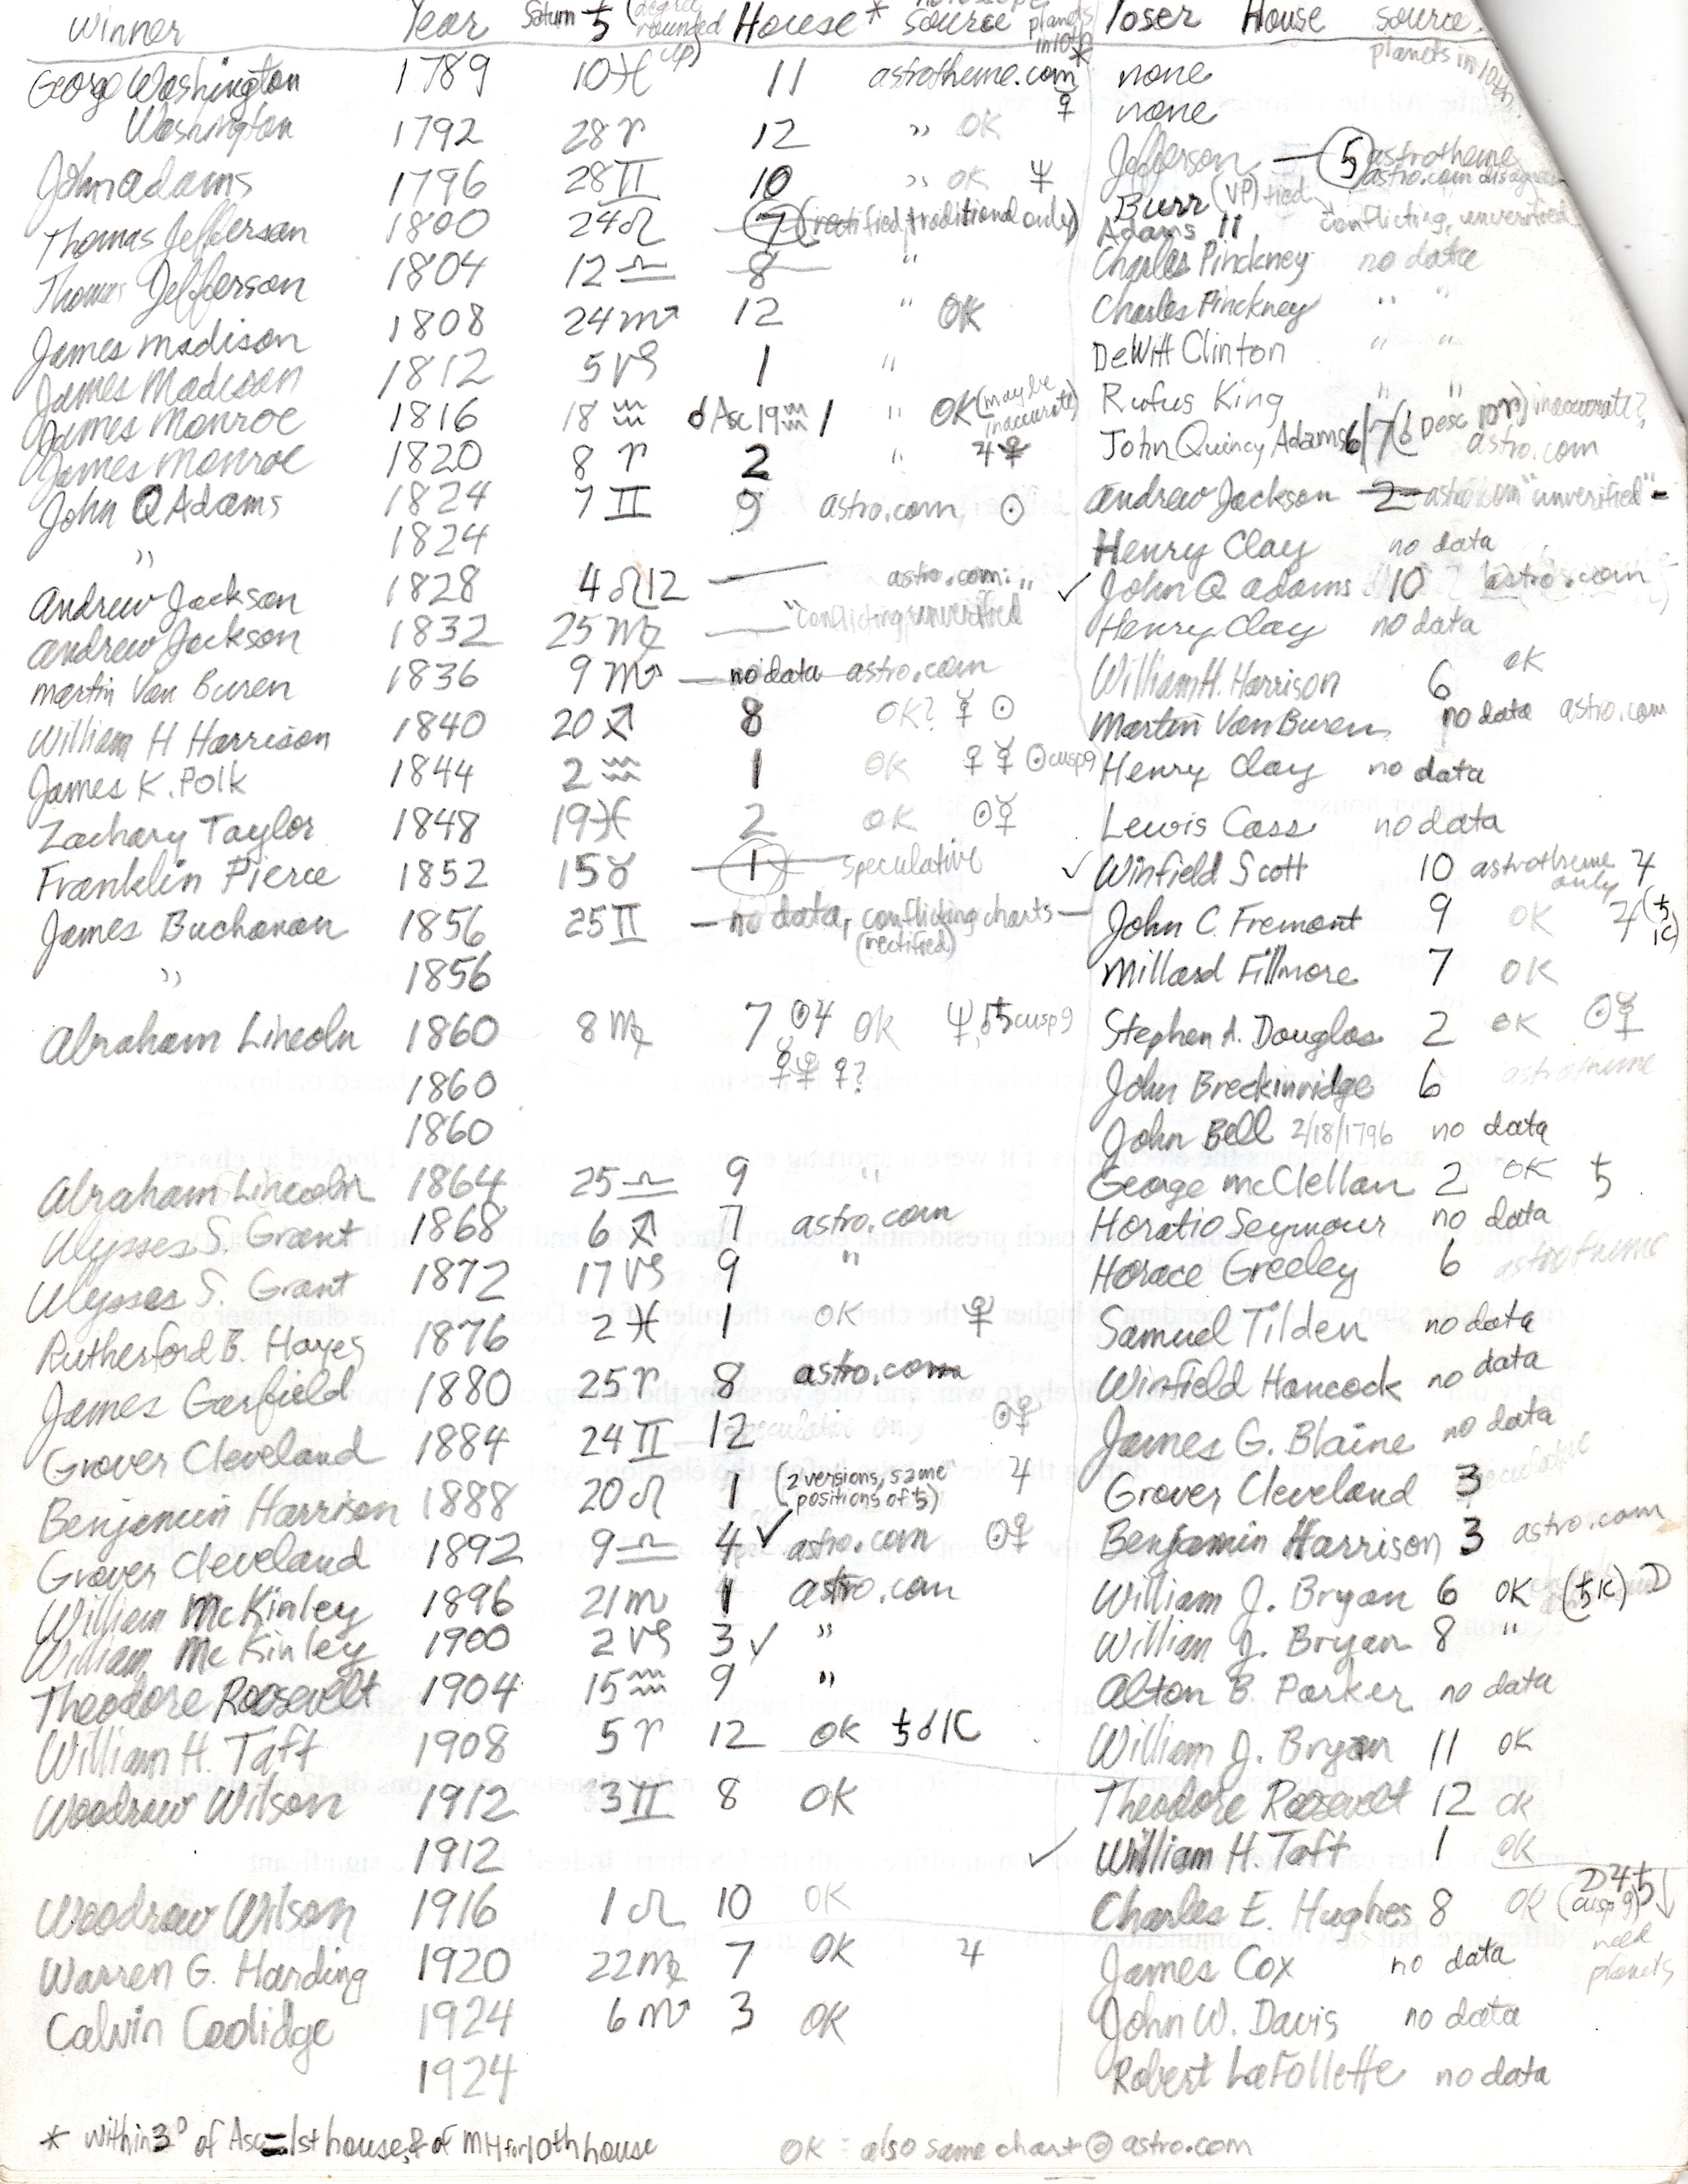 Winner Year Saturn ♄ (degree rounded up) House* Source planets in 10th * loser House source planets in 10th
George Washington 1789 10♓ 11 astrotheme.com none
Washington 1792 28♈ 12 " OK ♀ none
John Adams 1796 28♊ 10 " OK Jefferson — 5 astrotheme astro.com
Thomas Jefferson 1800 24♌ 7 (rectified, traditional only) Burr (VP) tied conflicting, unverified
Adams 11
Thomas Jefferson 1804 12♎ 8 " Charles Pinckney no data
James Madison 1808 24♏ 12 " OK Charles Pinckney " "
James Madison 1812 5♑ 1 " DeWitt Clinton " "
James Monroe 1816 18♒ ☌ Asc 19♒ 1 " OK (may be inaccurate) Rufus King " "
James Monroe 1820 8♈ 2 " ♃♀ John Quincy Adams 6/7 (☌ Desc 10♈) inaccurate? astro.com
John Q Adams 1824 7♊ 9 astro.com ☉ Andrew Jackson 2 astro.com "unverified"
" 1824 Henry Clay no data
Andrew Jackson 1828 4♌12 — astro.com: " ✓ John Q Adams 10 astro.com
Andrew Jackson 1832 25♍ — "conflicting, unverified" Henry Clay no data
Martin Van Buren 1836 9♏ — no data — astro.com William H. Harrison 6 OK
William H Harrison 1840 20♐ 8 OK? ☿ ☉ Martin Van Buren no data astro.com
James K. Polk 1844 2♒ 1 OK ♀ ☿ ☉ cusp 9 Henry Clay no data
Zachary Taylor 1848 19♓ 2 OK ☉☿ Lewis Cass no data
Franklin Pierce 1852 15♉ 1 speculative ✓ Winfield Scott 10 astrotheme only ♃
James Buchanan 1856 25♊ — no data, conflicting charts — (rectified) John C. Fremont 9 OK ♃ (♄ IC)
" 1856 Millard Fillmore 7 OK
Abraham Lincoln 1860 8♍ 7 ☉♃ OK ♆, ♄ cusp 9 Stephen A. Douglas 2 OK ☉☿
1860 John Breckinridge 6 astrotheme
1860 John Bell 2/18/1796 no data
Abraham Lincoln 1864 25♎ 9 " George McClellan 2 OK ♄
Ulysses S. Grant 1868 6♐ 7 astro.com Horatio Seymour no data
Ulysses S. Grant 1872 17♑ 9 " Horace Greeley 6 astrotheme
Rutherford B. Hayes 1876 2♓ 1 OK Samuel Tilden no data
James Garfield 1880 25♈ 8 astro.com Winfield Hancock no data
Grover Cleveland 1884 24♊ 12 speculative only ☉♀ James G. Blaine no data
Benjamin Harrison 1888 20♌ 1 (2 versions, same positions of ♄) ♃ Grover Cleveland 3 speculative
Grover Cleveland 1892 9♎ 4 ✓ astro.com ☉♀ Benjamin Harrison 3 astro.com
William McKinley 1896 21♏ 1 astro.com William J. Bryan 6 OK (♄ IC) ☽
William McKinley 1900 2♑ 3 ✓ " William J. Bryan 8 "
Theodore Roosevelt 1904 15♒ 9 " Alton B. Parker no data
William H. Taft 1908 5♈ 12 OK ♄☌IC William J. Bryan 11 OK
Woodrow Wilson 1912 3♊ 8 OK Theodore Roosevelt 12 OK
1912 ✓ William H. Taft 1 OK
Woodrow Wilson 1916 1♌ 10 OK Charles E. Hughes 8 OK ☽♃♄ (cusp 9) ↓ need planets
Warren G. Harding 1920 22♍ 7 OK ♃ James Cox no data
Calvin Coolidge 1924 6♏ 3 OK John W. Davis no data
1924 Robert LaFollette no data
* within 3° of Asc = 1st house, & of MH for 10th house OK = also same chart @ astro.com